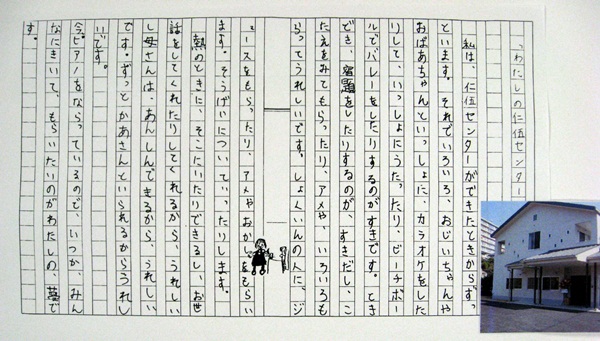 「わたしの仁伍センター
私は、仁伍センターができたときからずっ
といます。それでいろいろ、おじいちゃんや
おばあちゃんといっしょに、カラオケをした
りして、いっしょにうたったり、ビーチボー
ルでバレーをしたりするのがすきです。とき
どき、宿題をしたりするのが、すきだし、こ
たえをみてもらったり、アメや、いろいろも
らってうれしいです。しょくいんの人に、ジ
ュースをもらったり、アメやおかしをもらい
ます。そうげいについていったりします。
熱のときに、そこにいたりできるし、お世
話をしてくれたりしてくれるから、うれしい
し母さんは、あんしんできるから、うれしい
です。ずっとかあさんといられるからうれし
いです。
今、ピアノをならっているので、いつか、みん
なにきいて、もらいたいのがわたしの、夢で
す。